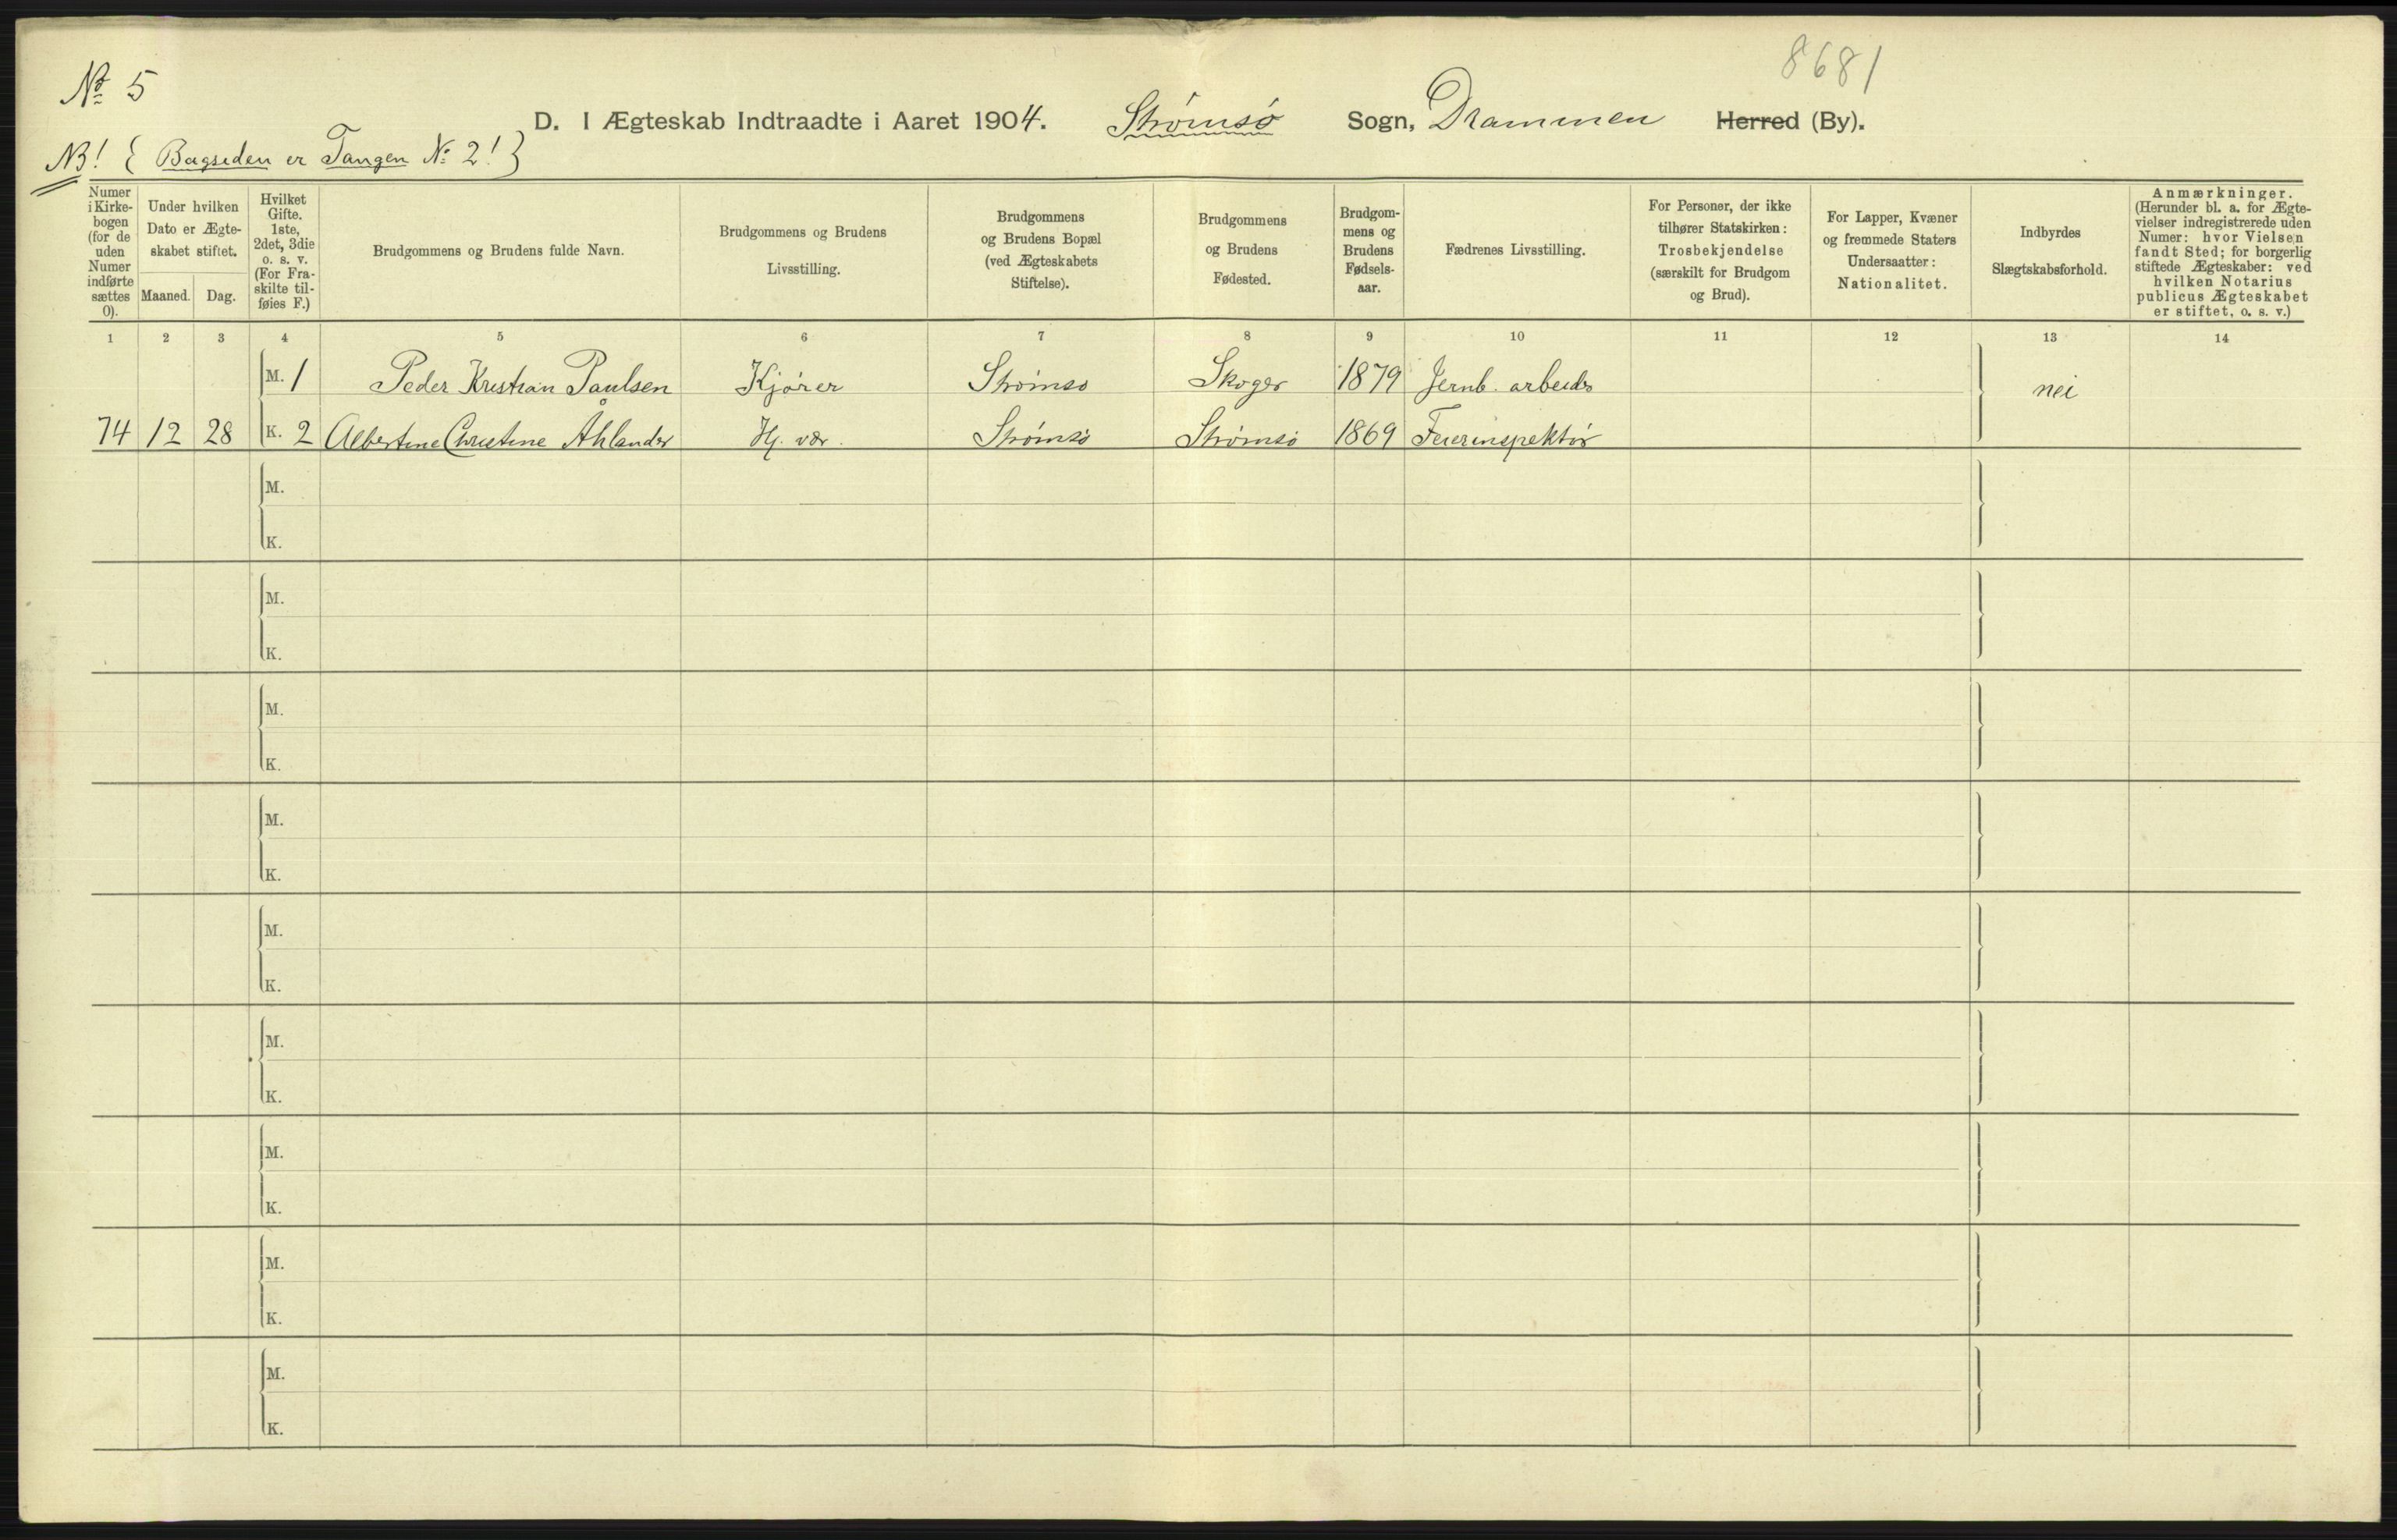 8681
No 5
D. I Ægteskab Indtraadte i Aaret 1904. Strømsø Sogn, Drammen Herred (By).
NB! { Bagsiden er Tangen No 2! }
Numer i Kirkebogen (for de uden Numer indførte sættes 0).
Under hvilken Dato er Ægteskabet stiftet.
Maaned. Dag.
Hvilket Gifte. 1ste, 2det, 3die o. s. v. (For Fraskilte tilføies F.)
Brudgommens og Brudens fulde Navn.
Brudgommens og Brudens Livsstilling.
Brudgommens og Brudens Bopæl (ved Ægteskabets Stiftelse).
Brudgommens og Brudens Fødested.
Brudgommens og Brudens Fødselsaar.
Fædrenes Livsstilling.
For Personer, der ikke tilhører Statskirken: Trosbekjendelse (særskilt for Brudgom og Brud).
For Lapper, Kvæner og fremmede Staters Undersaatter: Nationalitet.
Indbyrdes Slægtskabsforhold.
Anmærkninger. (Herunder bl. a. for Ægtevielser indregistrerede uden Numer: hvor Vielsen fandt Sted; for borgerlig stiftede Ægteskaber: ved hvilken Notarius publicus Ægteskabet er stiftet, o. s. v.)
1 2 3 4 5 6 7 8 9 10 11 12 13 14
M. 1 Peder Kristian Paulsen Kjører Strømsø Skoger 1879 Jernb. arbeider nei
74 12 28 K. 2 Albertine Christine Åhlander Hj. vær. Strømsø Strømsø 1869 Feierinspektør
M.
K.
M.
K.
M.
K.
M.
K.
M.
K.
M.
K.
M.
K.
M.
K.
M.
K.